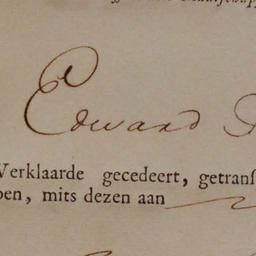 Edward
Verklaarde gecedeert, getransf
ben, mits dezen aan